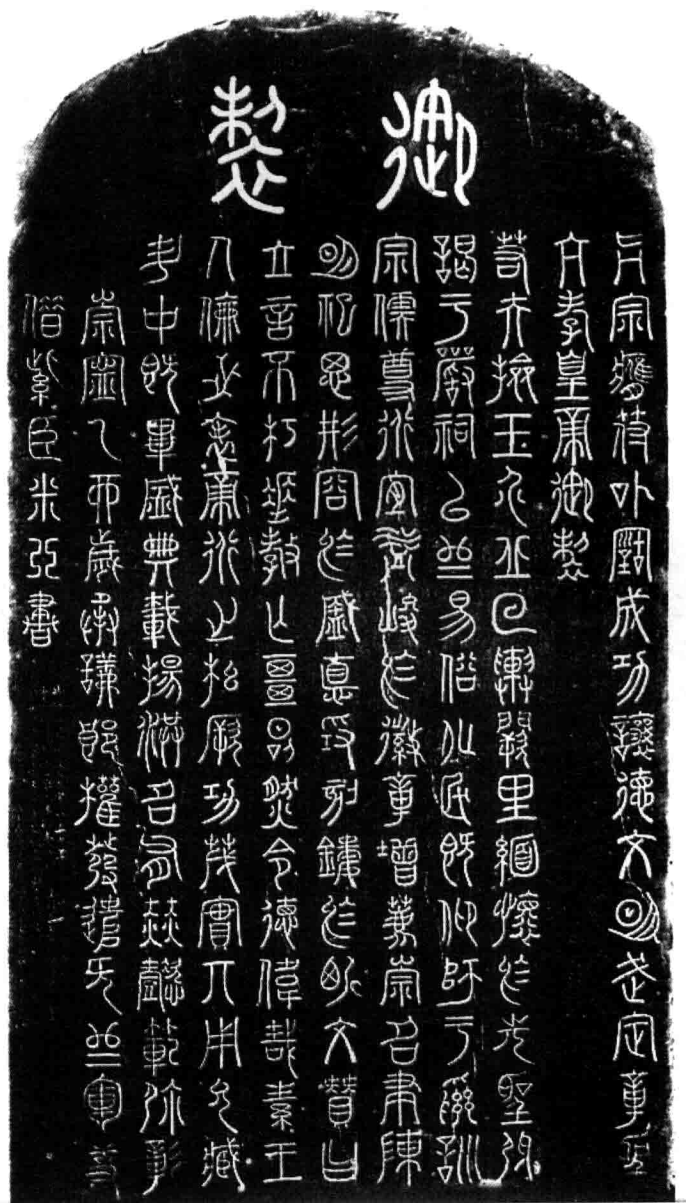 御製
真宗膺符稽古成功讓德文明武定章聖
元孝皇帝御製
若夫檢玉介丘回輿闕里緬懷於先聖躬
謁于嚴祠以為易俗化民既仰師于彝訓
宗儒尊道宜益峻於徽章增薦崇名聿陳
明祀思形容於盛德爰刻鏤於斯文贊曰
立言不朽垂教無疆昭然令德偉哉素王
人倫之表帝道之綱厥功茂實其用允臧
升中既畢盛典載揚洪名有赫懿範彌彰
崇寧乙酉歲承議郎權發遣无為軍事
借紫臣米芾書